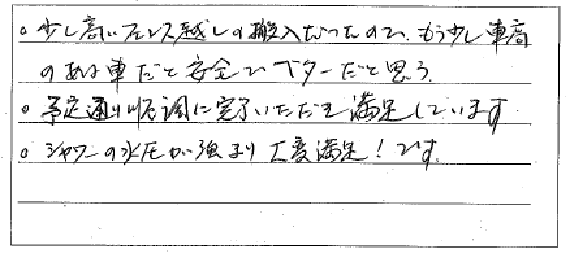 。少し高いフェンス越しの搬入だったので、もう少し車高
のある車だと安全でベターだと思う。
。予定通り順調に完了いただき満足しています
。シャワーの水圧が強まり大変満足！です。